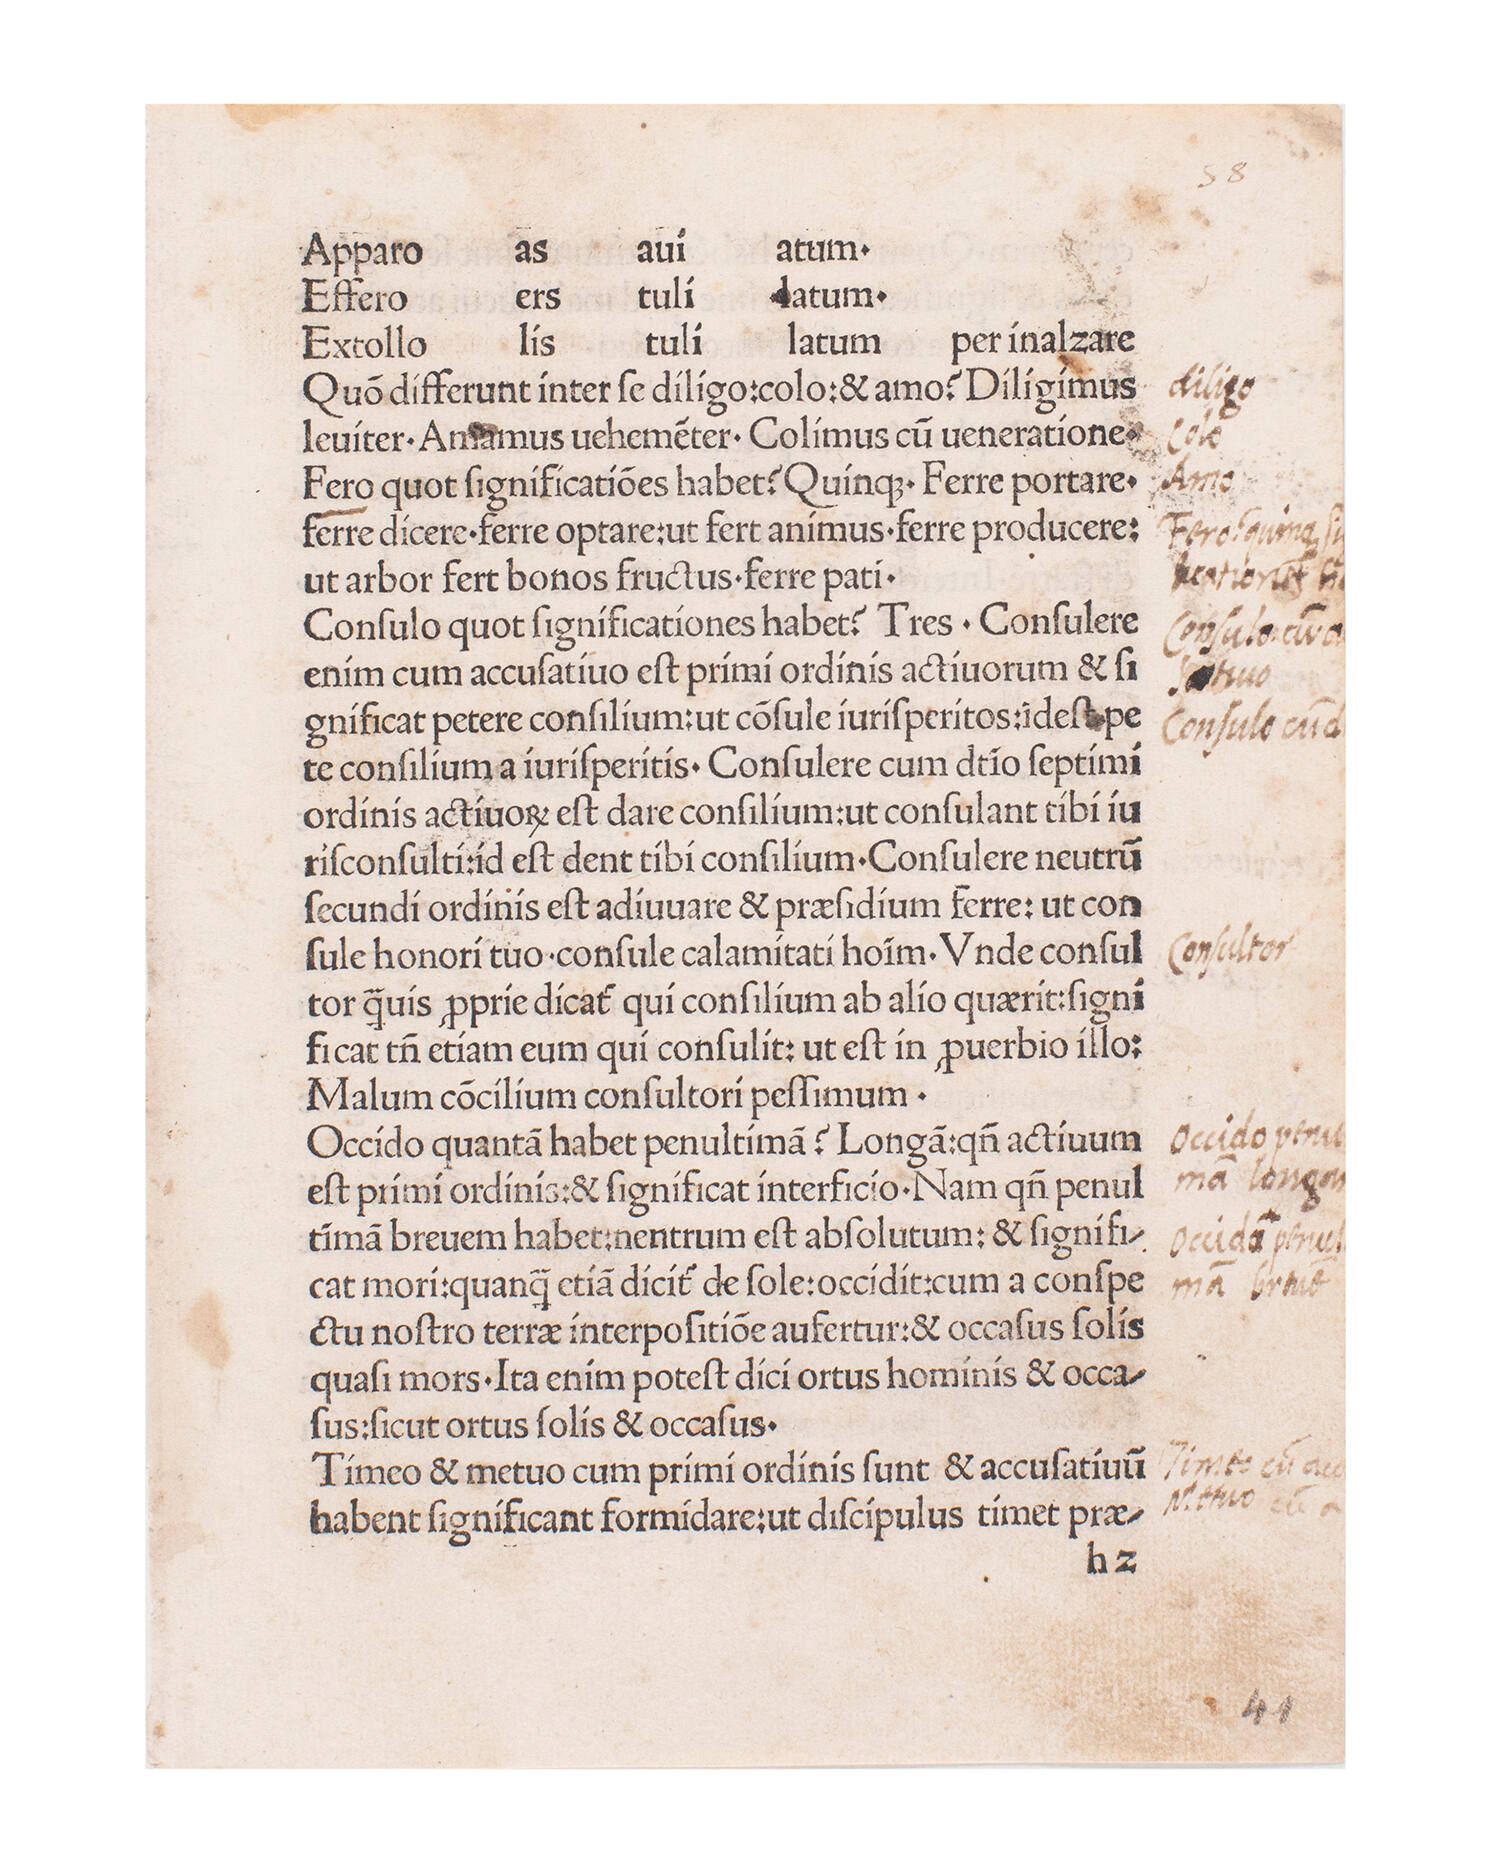 58
Apparo as aui atum·
Effero ers tuli latum·
Extollo lis tuli latum per inalzare
Quō differunt inter ſe diligo:colo:& amo? Diligimus
leuiter· Amamus uehemēter· Colimus cū ueneratione·
Fero quot ſignificatiōes habet? Quinqꝫ· Ferre portare·
ferre dicere·ferre optare:ut fert animus·ferre producere:
ut arbor fert bonos fructus·ferre pati·
Conſulo quot ſignificationes habet? Tres · Conſulere
enim cum accuſatiuo eſt primi ordinis actiuorum & ſi
gnificat petere conſilium:ut cōſule iuriſperitos:ideſt pe
te conſilium a iuriſperitis· Conſulere cum dtīo ſeptimi
ordinis actiuoꝝ eſt dare conſilium:ut conſulant tibi iu
riſconſulti:id eſt dent tibi conſilium·Conſulere neutrū
ſecundi ordinis eſt adiuuare & præſidium ferre: ut con
ſule honori tuo·conſule calamitati hoīm· Vnde conſul
tor q̄uis ꝓprie dicat᷑ qui conſilium ab alio quærit:ſigni
ficat tn̄ etiam eum qui conſulit: ut eſt in ꝓuerbio illo:
Malum cōcilium conſultori peſſimum ·
Occido quantā habet penultimā? Longā:qn̄ actiuum
eſt primi ordinis:& ſignificat interficio·Nam qn̄ penul
timā breuem habet:nentrum eſt abſolutum: & ſignifi⸗
cat mori:quanq̄ etiā dicit᷑ de ſole:occidit:cum a conſpe
ctu noſtro terræ interpoſitiōe aufertur:& occaſus ſolis
quaſi mors·Ita enim poteſt dici ortus hominis & occa⸗
ſus:ſicut ortus ſolis & occaſus·
Timeo & metuo cum primi ordinis ſunt & accuſatiuū
habent ſignificant formidare:ut diſcipulus timet præ⸗
h 2
diligo
Colo
Amo
Fero
Conſulo
Conſulo cū d
Conſultor
Occido penul
mā longam
Occidā penul
mā breuē
Timeo cū acc
Metuo cū a
41